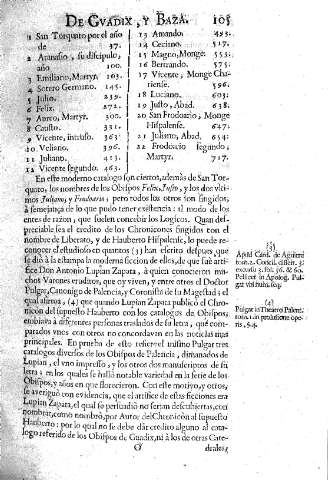 DE GVADIX, Y BAZA. 105
1 San Torquato por el año de 37.
2 Atanasio, su discipulo, año 100.
3 Emiliano, Martyr. 163.
4 Sotero Germano. 145.
5 Julio. 239.
6 Felix. 272.
7 Aureo, Martyr. 300.
8 Fausto. 331.
9 Vicente, intruso. 363.
10 Veliano. 396.
11 Juliano. 413.
12 Vicente segundo. 463.
13 Amando. 493.
14 Ceciano. 517.
15 Magno, Monge. 553.
16 Bertrando. 575.
17 Vicente, Monge Chariense. 596.
18 Luciano. 603.
19 Justo, Abad. 638.
20 San Frodoario, Monge Hispalense. 647.
21 Juliano, Abad. 654.
22 Frodoario segundo, Martyr. 717.
En este moderno catalogo son ciertos, además de San Torquato,
los nombres de los Obispos Felix, Justo, y los dos vltimos
Juliano, y Frodoario; pero todos los otros son fingidos,
à semejança de lo que pudo tener existencia: al modo de los
entes de razon, que suelen concebir los Logicos. Quan despreciable
sea el credito de los Chronicones fingidos con el
nombre de Liberato, y de Hauberto Hispalense, lo puede reconocer
el estudioso en quantos (3) han escrito despues, que
se diò à la estampa la moderna ficcion de ellos, de que fue artifice
Don Antonio Lupian Zapata, à quien conocieron muchos
Varones eruditos, que oy viven, y entre otros el Doctor
Pulgar, Canonigo de Palencia, y Coronista de su Magestad: el
qual afirma, (4) que quando Lupian Zapata publicò el Chronicon
del supuesto Hauberto con los catalogos de Obispos,
embiava à diferentes personas traslados de su letra, que comparados
vnos con otros no concordavan en las noticias mas
principales. En prueba de esto refiere el mismo Pulgar tres
catalogos diversos de los Obispos de Palencia, dimanados de
Lupian, el vno impresso, y los otros dos manuscriptos de su
letra: en los quales se hallò notable variedad en la serie de los
Obispos, y años en que florecieron. Con este motivo, y otros,
se averiguò con evidencia, que el artifice de estas ficciones era
Lupian Zapata, el qual se persuadiò no serian descubiertas, con
nombrar, como nombrò, por Autor del Chronicon al supuesto
Hauberto: por lo qual no se debe dàr credito alguno al catalogo
referido de los Obispos de Guadix, ni à los de otras Cate-
O drales;
(3)
Apud Card. de Aguirre
tom. 2. Concil. dissert. 3.
Pellicer in Apolog.
(4)
Pulgar in Theatro Palentino,